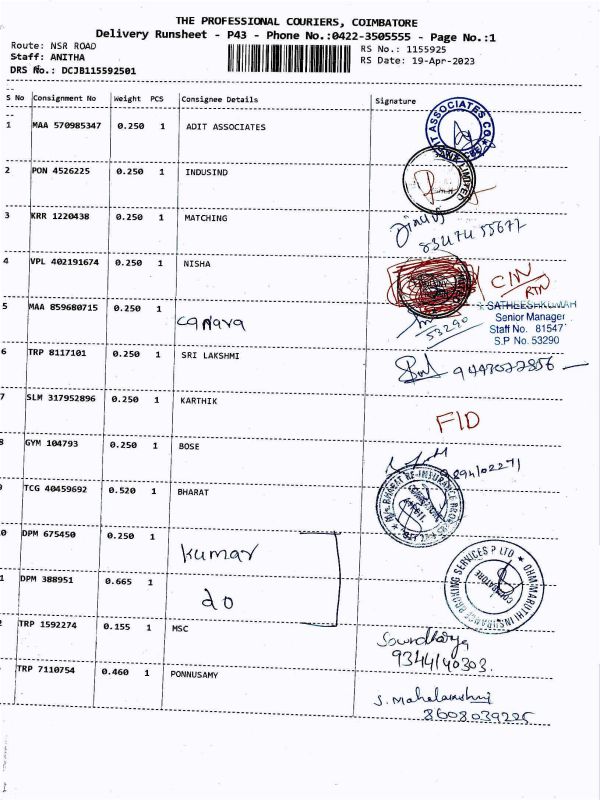 THE PROFESSIONAL COURIERS, COIMBATORE
Delivery Runsheet - P43 - Phone No.:0422-3505555 - Page No.:1
Route: NSR ROAD
RS No.: 1155925
Staff: ANITHA
RS Date: 19-Apr-2023
DRS No.: DCJB115592501
S No Consignment No Weight PCS Consignee Details Signature
1 MAA 570985347 0.250 1 ADIT ASSOCIATES
2 PON 4526225 0.250 1 INDUSIND
3 KRR 1220438 0.250 1 MATCHING
83474 55677
4 VPL 402191674 0.250 1 NISHA
C/N
RTN
5 MAA 859680715 0.250 1 canara
53290
SATHEESHKUMAR
Senior Manager
Staff No. 81547
S.P No. 53290
6 TRP 8117101 0.250 1 SRI LAKSHMI
7 SLM 317952896 0.250 1 KARTHIK F/D
8 GYM 104793 0.250 1 BOSE
9894102271
TCG 40459692 0.520 1 BHARAT
0 DPM 675450 0.250 1 kumar
1 DPM 388951 0.665 1 do
OHM MARUTHI INSURANCE BROKING SERVICES P LTD
COIMBATORE
2 TRP 1592274 0.155 1 MSC
Soundharya
9344140303.
TRP 7110754 0.460 1 PONNUSAMY
S. Mahalakshmi
8608039225